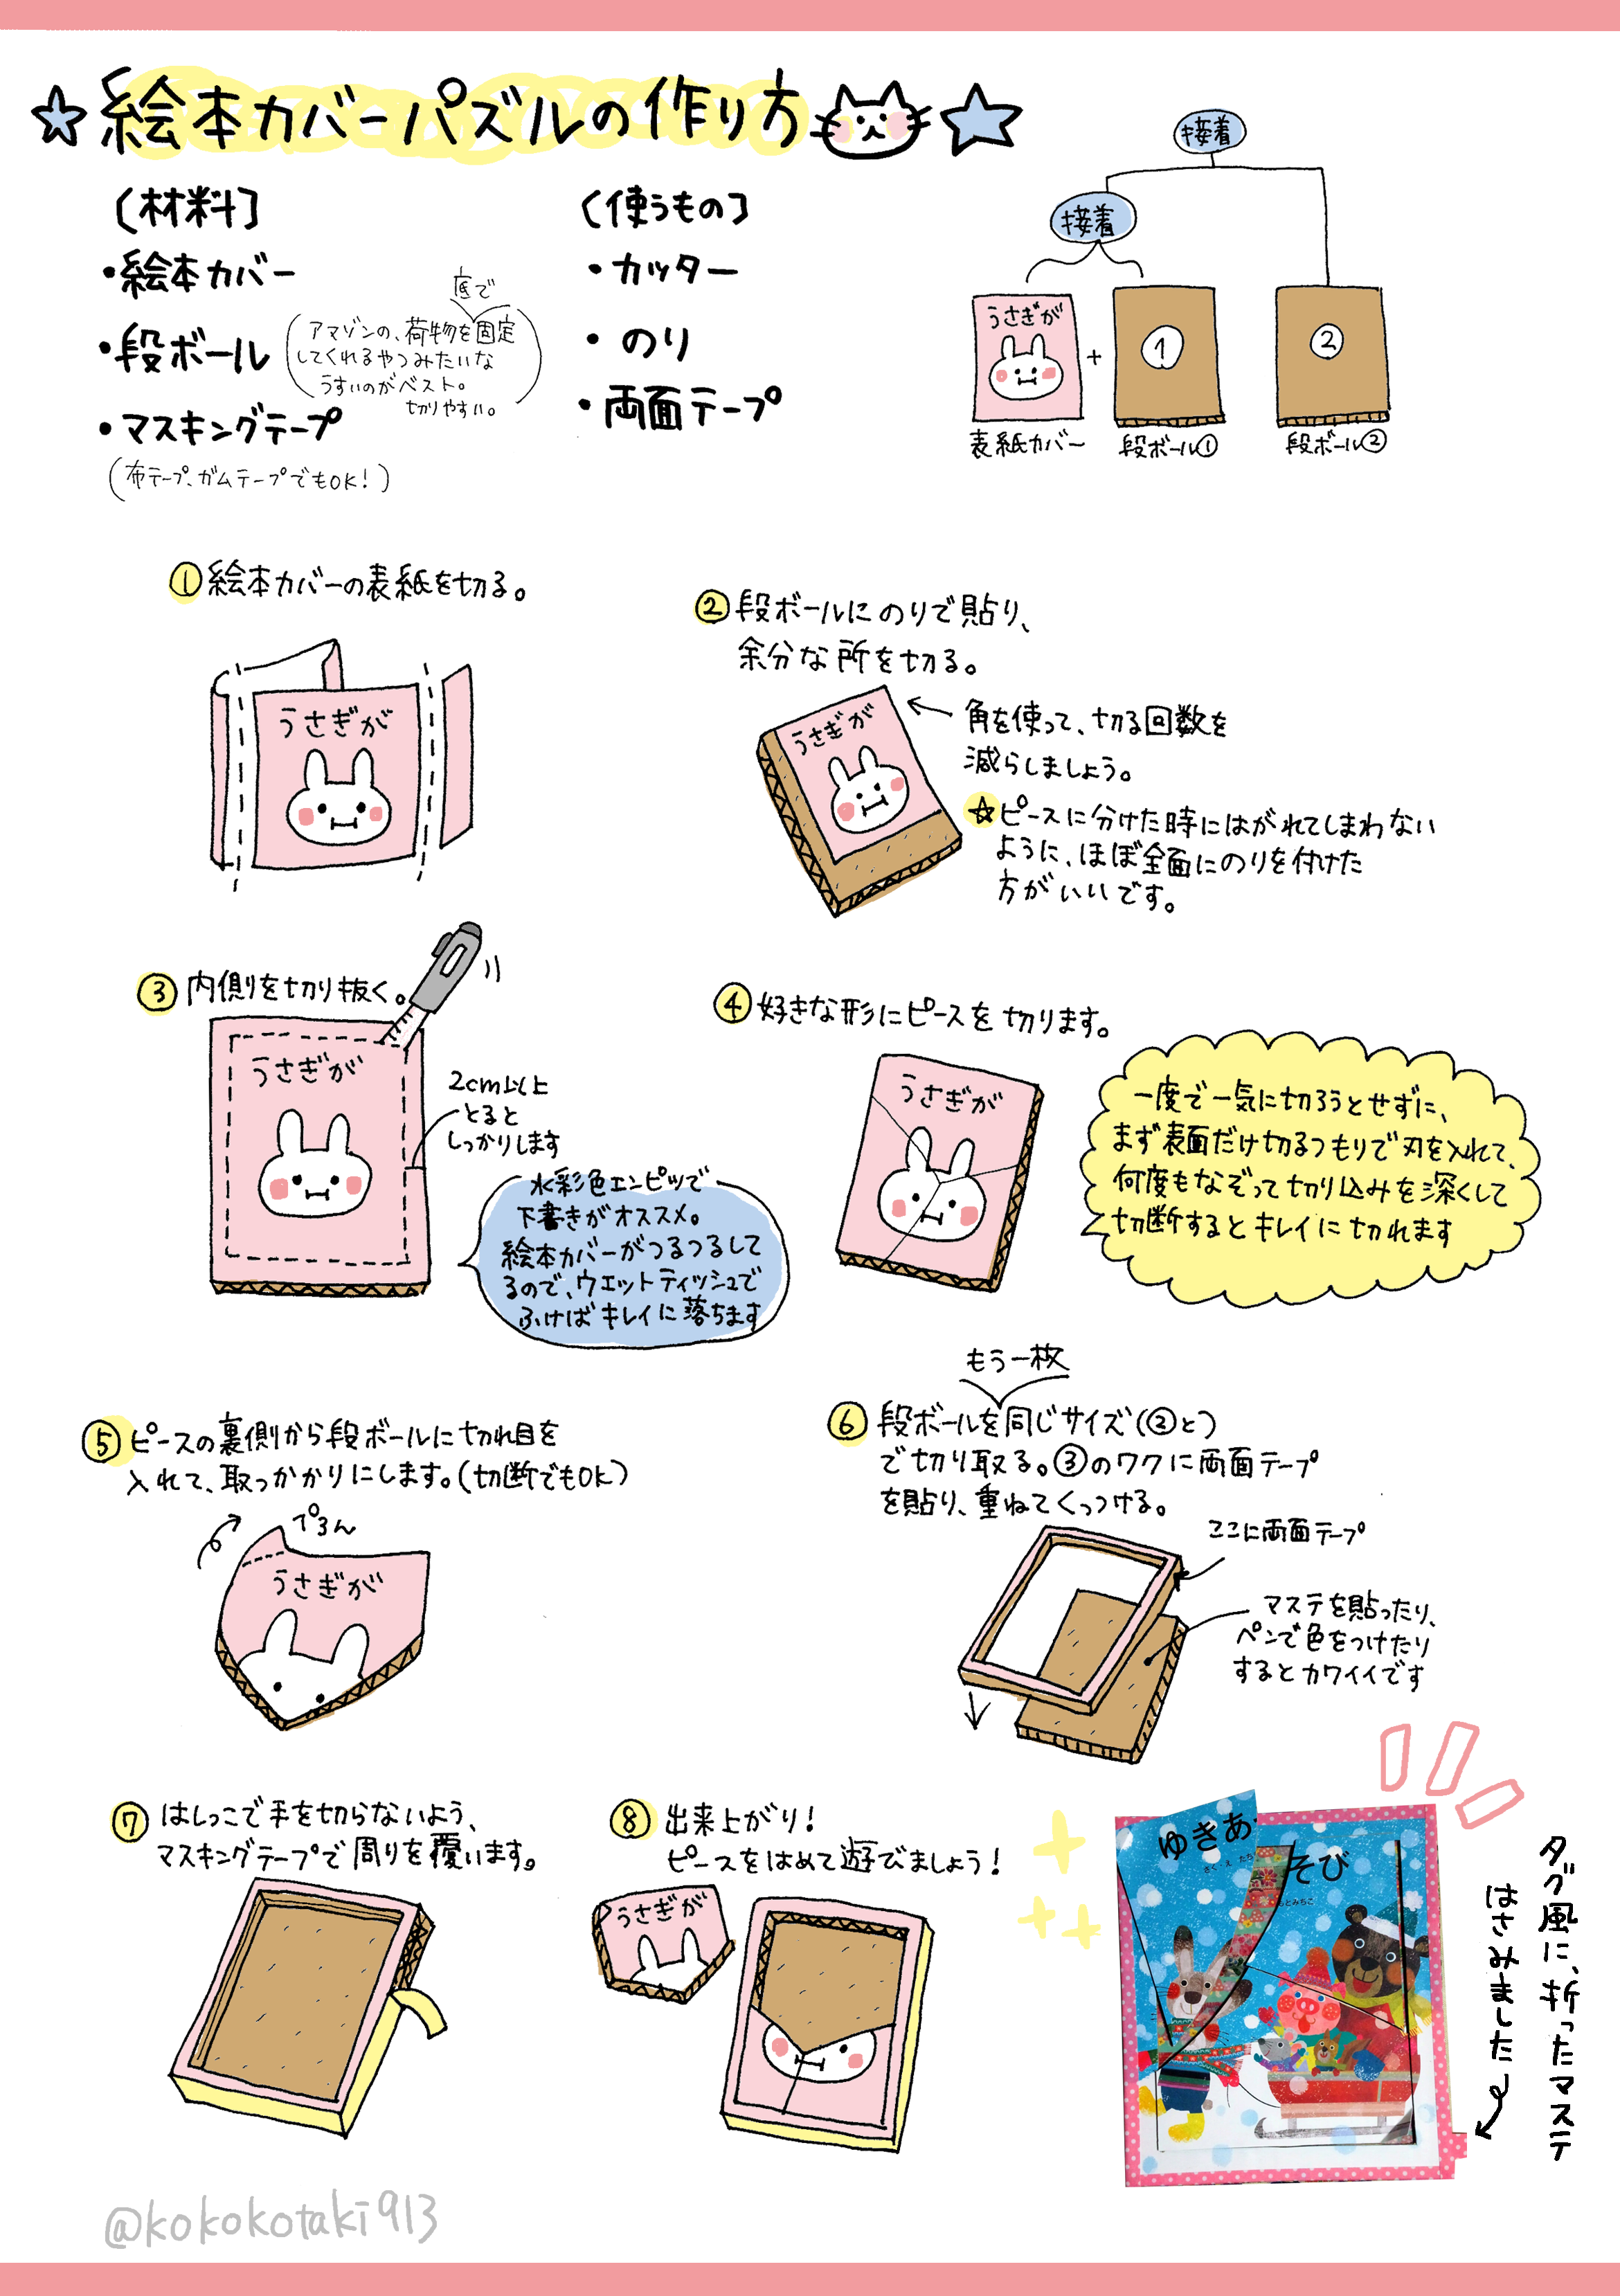 絵本カバーパズルの作り方
(材料]
・絵本カバー
・段ボール
底で
(アマゾンの、荷物を固定
してくれるやつみたいな
うすいのがベスト。
切りやすい。)
・マスキングテープ
(布テープ、ガムテープでもOK!)
(使うもの]
・カッター
・のり
・両面テープ
接着
接着
うさぎが
+
1
2
表紙カバー
段ボール①
段ボール②
①絵本カバーの表紙を切る。
うさぎが
②段ボールにのりで貼り、
余分な所を切る。
うさぎが
角を使って、切る回数を
減らしましょう。
☆ピースに分けた時にはがれてしまわない
ように、ほぼ全面にのりを付けた
方がいいです。
③内側を切り抜く。
うさぎが
2cm以上
とると
しっかりします
水彩色エンピツで
下書きがオススメ。
絵本カバーがつるつるして
るので、ウエットティッシュで
ふけばキレイに落ちます
④好きな形にピースを切ります。
うさぎが
一度で一気に切ろうとせずに、
まず表面だけ切るつもりで刃を入れて、
何度もなぞって切り込みを深くして
切断するとキレイに切れます
⑤ピースの裏側から段ボールに切れ目を
入れて、取っかかりにします。(切断でもOK)
ぺろん
うさぎが
もう一枚
⑥段ボールを同じサイズ(②と)
で切り取る。③のワクに両面テープ
を貼り、重ねてくっつける。
ここに両面テープ
マステを貼ったり、
ペンで色をつけたり
するとカワイイです
⑦はしっこで手を切らないよう、
マスキングテープで周りを覆います。
⑧出来上がり!
ピースをはめて遊びましょう!
うさぎが
ゆきあ
そび
さく・え たち
もとみちこ
タグ風に、折ったマステ
はさみました
@kokokotaki913